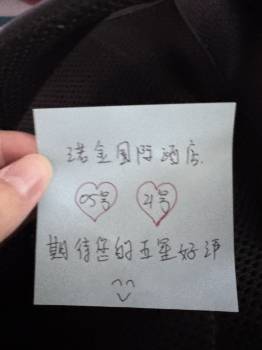 诺金国际酒店.
05号 21号
期待您的五星好评